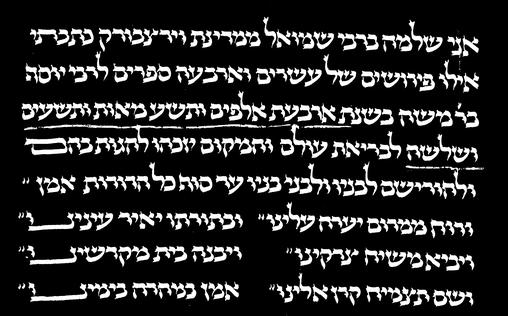 אני שלמה ברבי שמואל ממדינת וירצבורק כתבתי
אילו פירושים של עשרים וארבעה ספרים לרבי יוסף
בר׳ משה בשנת ארבעת אלפים ותשע מאות ותשעים
ושלשה לבריאת עולם והמקום יזכהו להגות בהם
ולהורישם לבניו ולבני בניו עד סוף כל הדורות אמן ״
ורוח ממרום יערה עלינו״ ובתורתו יאיר עינינו״
ויביא משיח צדקינו״ ויבנה בית מקדשינו״
ושם תצמיח קרן אלינו״ אמן במהרה בימינו״